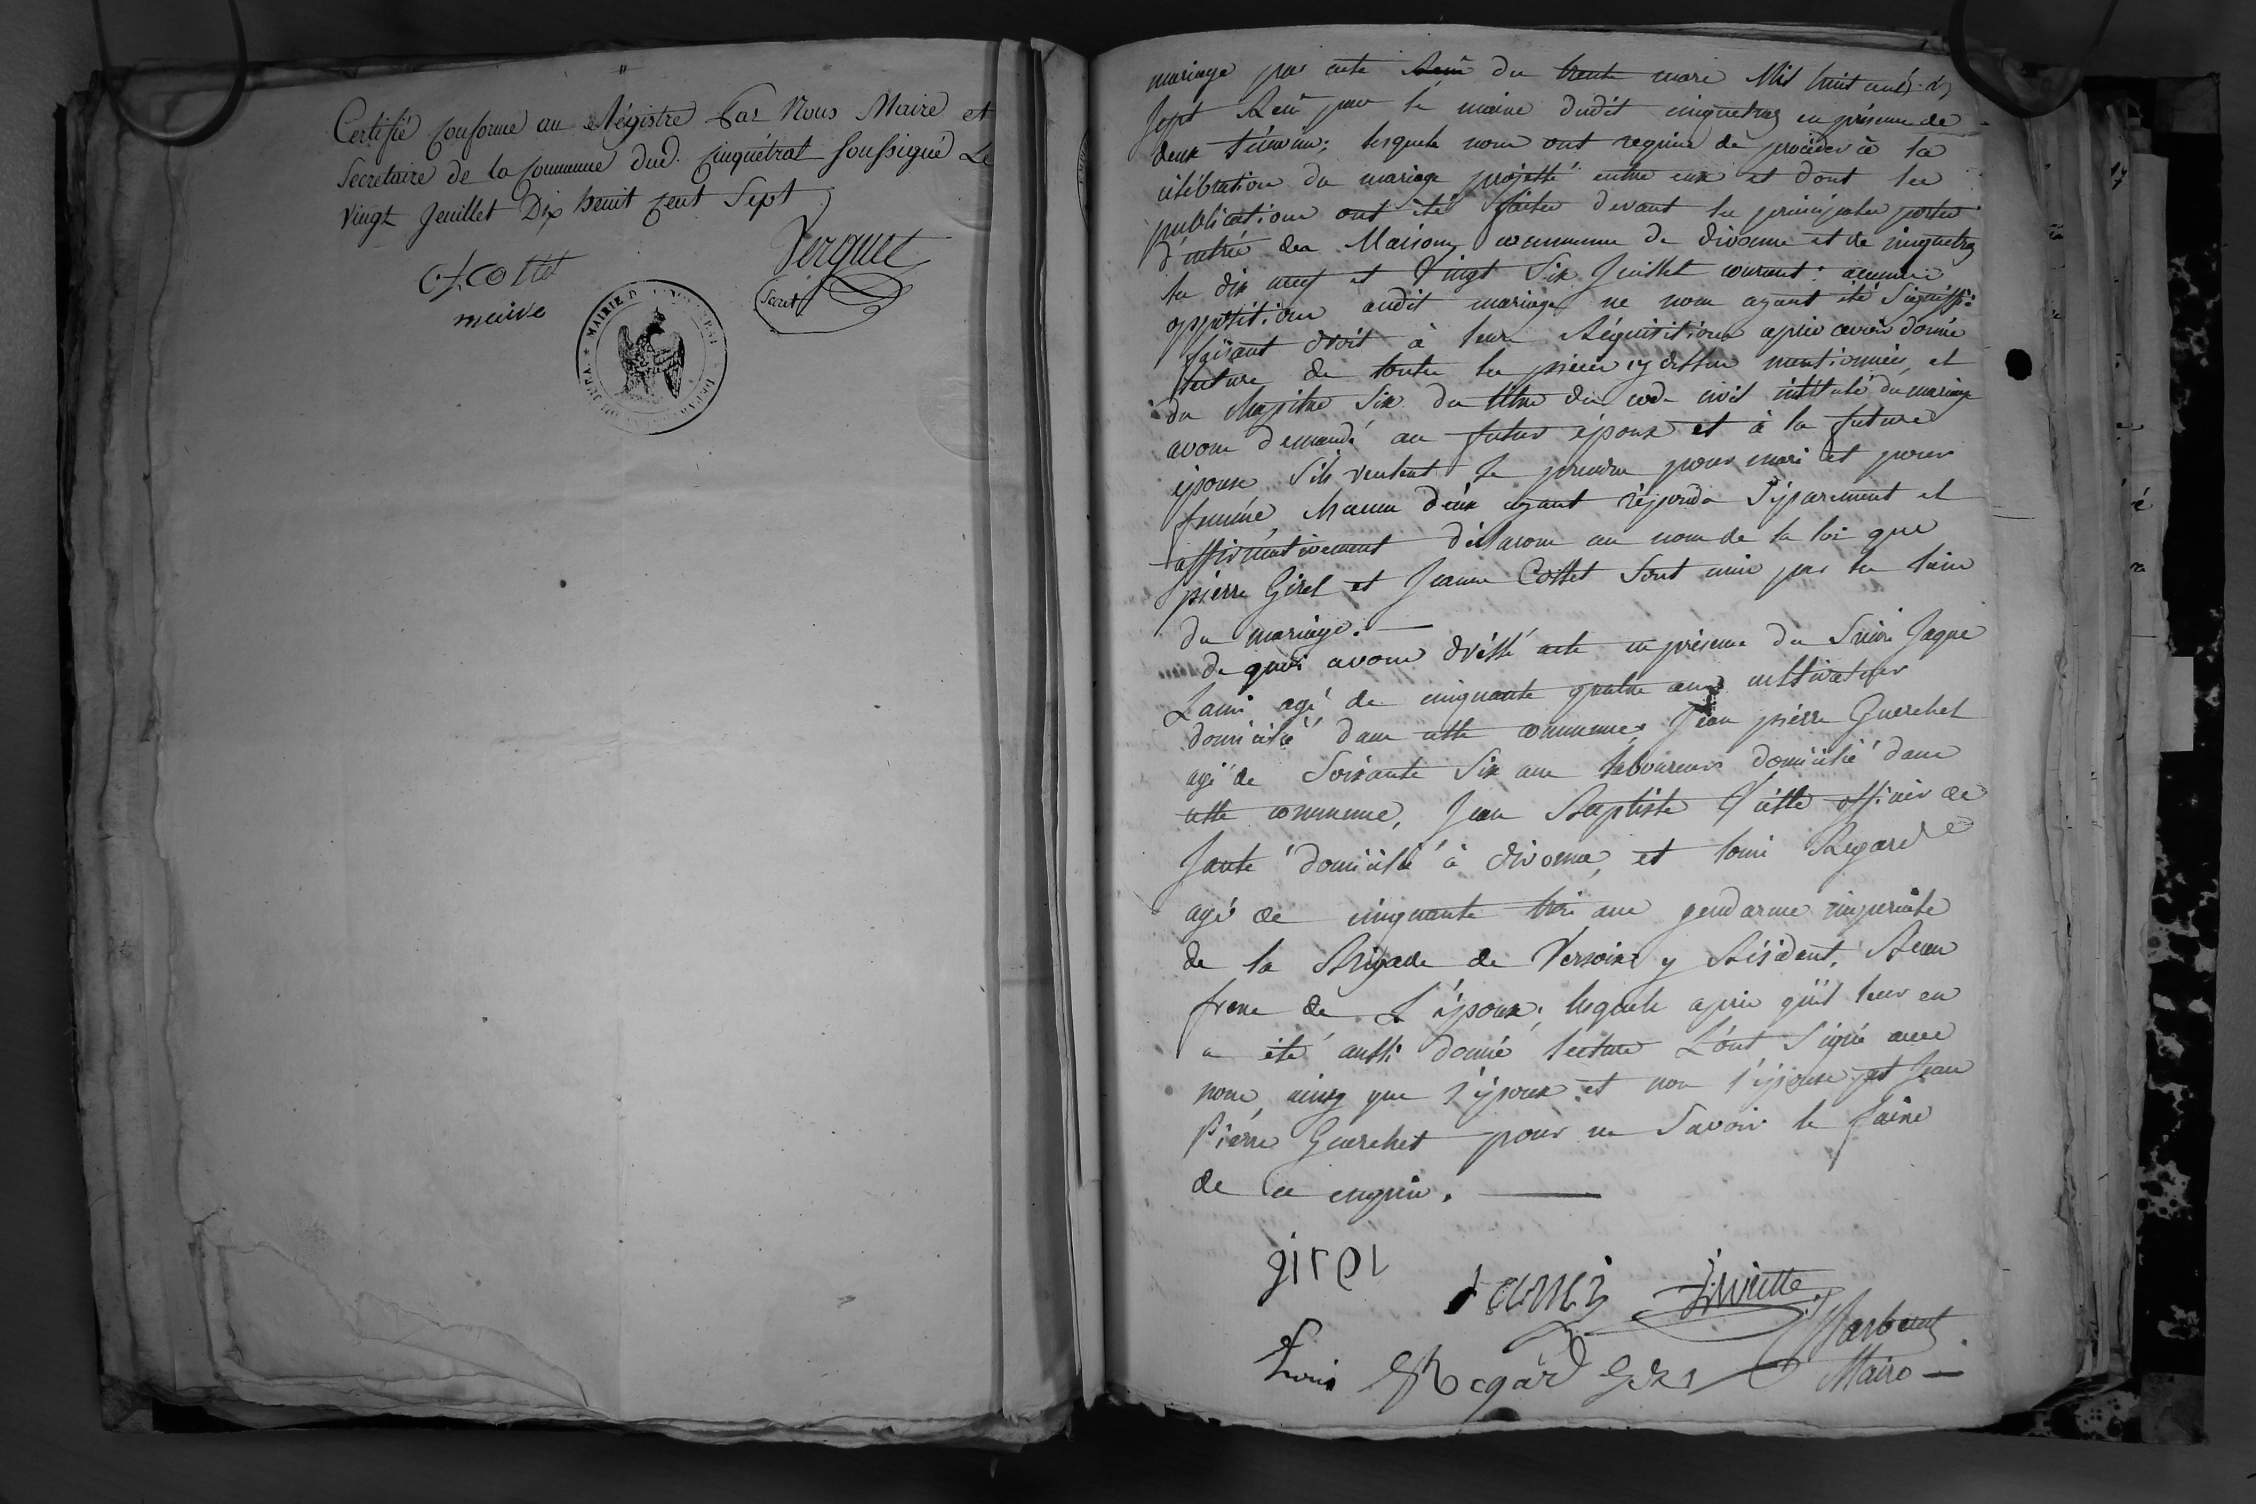 Certifié Conforme au Régistre Par Nous Maire et
Secretaire de la Commune dud. Cinquétral soussigné Le
vingt Jeuillet Dix heuit Cent Sept
Verguet
Secret
C. f. Cottet
meire
MAIRIE D
DU JURA
mariage par acte Recu du trente mars Mil huit cent
sept Recu par le maire dudit cinquetraz en présence de
deux témoins: lesquels nous ont requis de procéder à la
célébration du mariage projetté entre eux et dont les
publications ont été faites devant les principales portes
d'entrée des Maisons commune de divonne et de cinquetraz
les dix neuf et Vingt Six Juillet courant: aucune
opposition audit mariage ne nous ayant été Signiffié
faisant droit à leur Réquisition après avoir donné
lecture de toutes les pièces cy dessus mentionnées, et
du chapitre Six du titre du code civil intitulé du mariage
avons demandé au futur époux et à la future
épouse S'ils veulent se prendre pour mari et pour
femme, chacun d'eux ayant répondu Séparement et
affirmativement déclarons au nom de la loi que
pierre Girel et Jeanne Cottet Sont unis par les liens
du mariage.
de quoi avons dréssé acte en présence du Sieur Jaque
Lami agé de cinquante quatre ans cultivateur
domicilié dans cette commune, Jean pierre Guerchet
agé de Soixante Six ans laboureur domicilié dans
cette commune, Jean Baptiste Viette officier de
Santé domicilié à divonne, et Louis Regard
agé de cinquante trois ans gendarme imperiale
de la Brigade de Versoix y Résident, Beau
frere de L'époux; lesquels après qu'il leur en
a été aussi donné lecture L'ont Signé avec
nous ainsy que l'époux et non l'épouse et Jean
Pierre Guerchet pour ne Savoir le faire
de ce enquis.
girel
Lami
Viette
Louis Regard
Maire